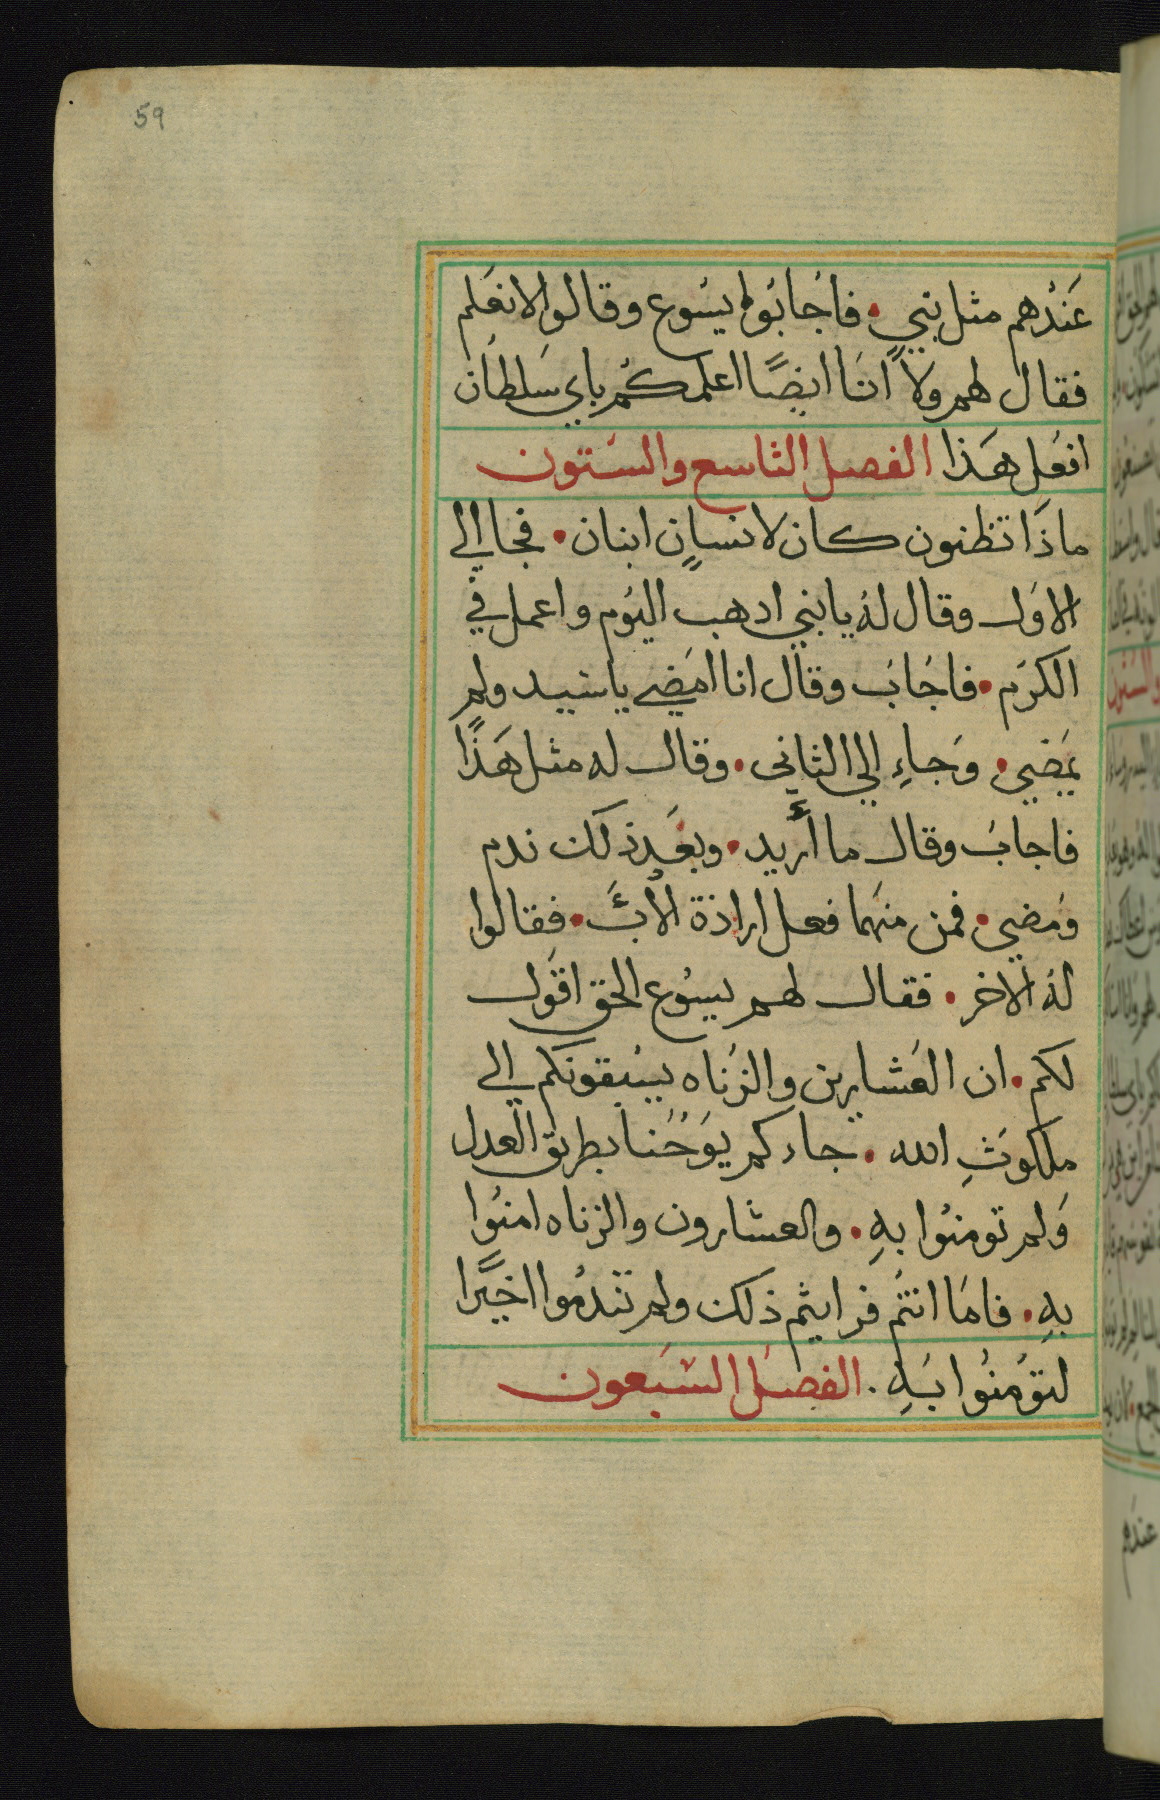 59
عَنْدهم مثل نبي • فاجابوا يسوع وقالوا لا نعلم
فقال لهم ولاً انَا ايضًا اعلمكُم باي سَلطان
افعُل هَذا الفصل التاسع والستون
ماذَا تظنون كان لانسانٍ ابنان • فجا الي
الاوَل وقال لهُ يا بني ادهب اليَوم واعمل في
الكرَم • فاجَابَ وقال انا امَضي يا سيد ولم
يمَضي • وَجاءِ الي الثاني • وقال له مثل هَذًا
فاجابُ وقال ما أريد • وبعَد ذلك ندم
ومَضي • فمن منهَما فعل اراذة الأبَّ • فقالوا
لهُ الاخر • فقال لهم يسوُع الحق اقَول
لكم • ان العَشارين والزنَاه يسَبقونكم الي
ملكوَثِ الله • جاءكم يوَحُنا بطريق العدل
وَلم تومنوُا بهِ • والعشارون والزناه امنوُا
بهِ • فامَا انتمُ فرايتم ذلك ولم تندمُوا اخيَرًا
لتؤمُنوُا بَهِ . الفصَل السَبعون
عندهم